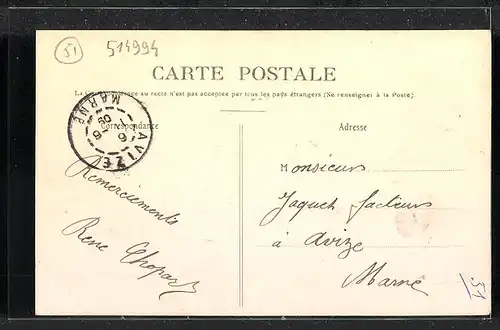 51
514994
CARTE POSTALE
La Correspondance au recto n'est pas acceptée par tous les pays étrangers (Se renseigner à la Poste)
AVIZE
MARNE
Correspondance
Adresse
Remerciements
René Chopart
Monsieur
Jaquet facteur
à Avize
Marne
51